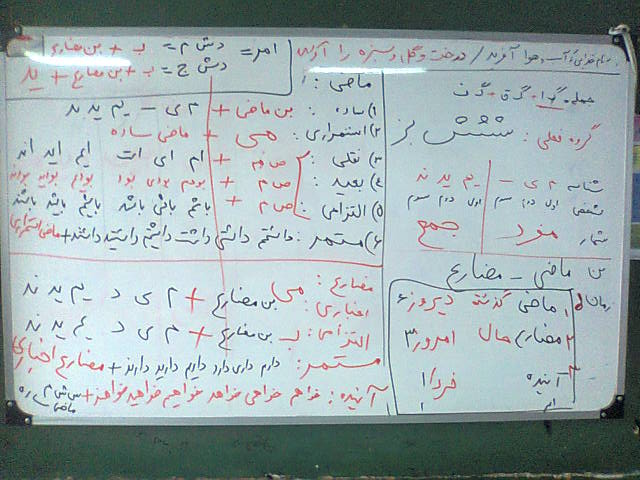 بنام خدایی که آب و هوا آفرید / درخت و گل و سبزه را آفرید
جمله = گزا + گ ق + گ ن
گروه فعلی : شششش بز
شناسه م ی - یم ید ند
شخص اول دوم سوم اول دوم سوم
شمار مفرد جمع
بن ماضی - مضارع
زمان
۱ ماضی گذشته دیروز ۶
۲ مضارع حال امروز ۳
۳ آینده فردا ۱
امر = دش م = ب + بن مضارع
دش ج = ب + بن مضارع + ید
ماضی :
۱) ساده : بن ماضی + م ی - یم ید ند
۲) استمراری : می + ماضی ساده
۳) نقلی : ص م + ام ای است ایم اید اند
۴) بعید : ص م + بودم بودی بود بودیم بودید بودند
۵) التزامی : ص م + باشم باشی باشد باشیم باشید باشند
۶) مستمر : داشتم داشتی داشت داشتیم داشتید داشتند + ماضی استمراری
مضارع :
اخباری : می + بن مضارع + م ی د یم ید ند
التزامی : ب + بن مضارع + م ی د یم ید ند
مستمر : دارم داری دارد داریم دارید دارند + مضارع اخباری
آینده : خواهم خواهی خواهد خواهیم خواهید خواهند + س ش م ماضی ساده